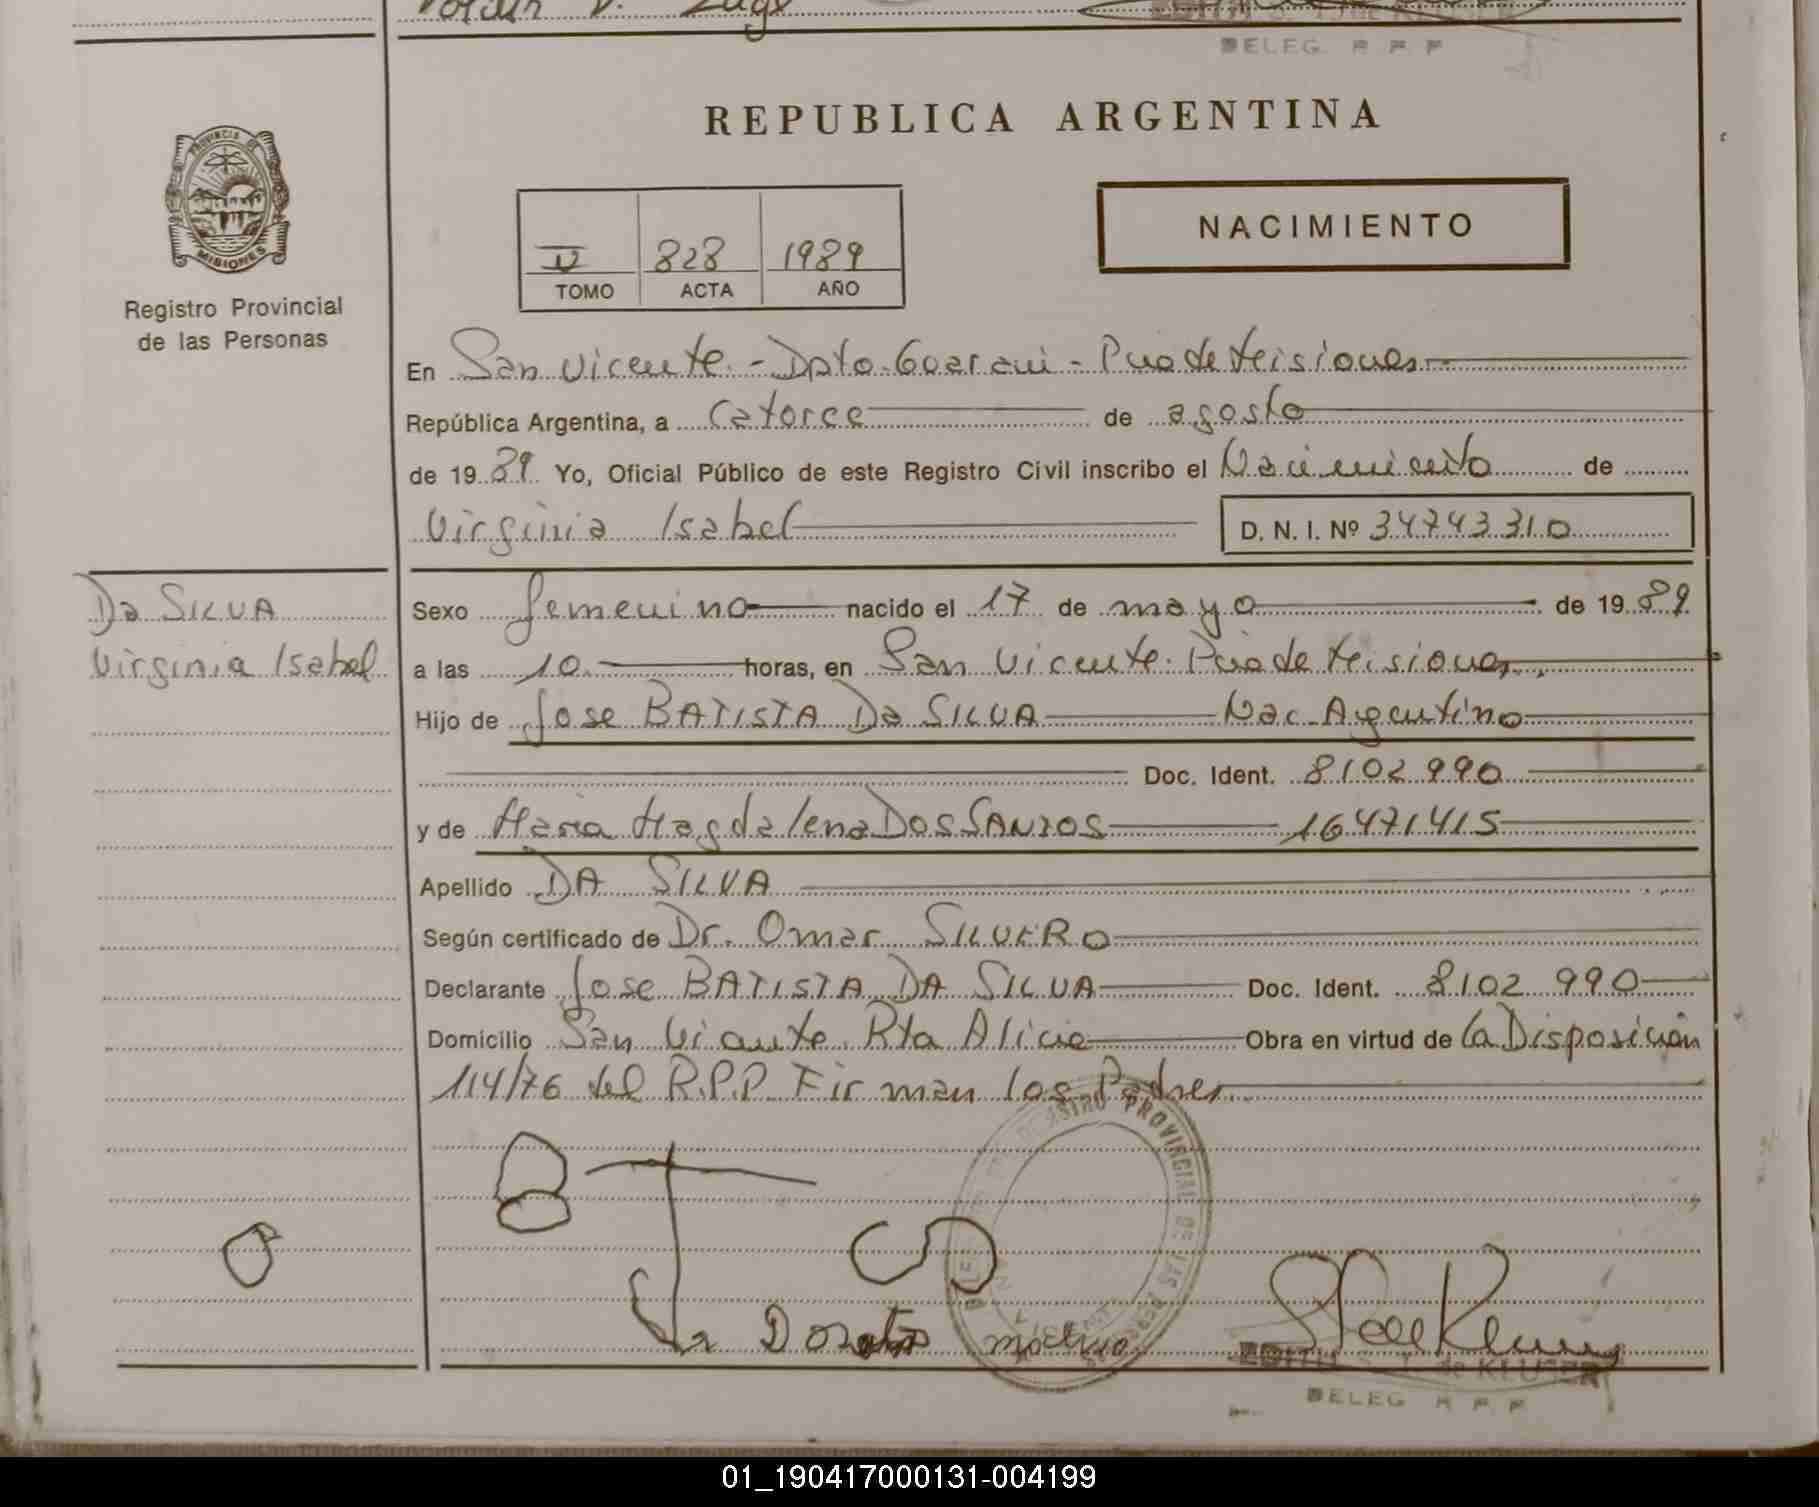 DELEG. R P P
REPUBLICA ARGENTINA
PROVINCIA DE
MISIONES
Registro Provincial
de las Personas
NACIMIENTO
II 828 1989
TOMO ACTA AÑO
En San Vicente - Dpto. Guarani - Pcia de Misiones
República Argentina, a catorce de agosto
de 19 89 Yo, Oficial Público de este Registro Civil inscribo el Nacimiento de
Virginia Isabel D. N. I. Nº 34743310
Da SILVA
Virginia Isabel
Sexo femenino nacido el 17 de mayo de 19 89
a las 10 horas, en San Vicente. Pcia de Misiones
Hijo de Jose BATISTA Da SILVA Nac. Argentino
Doc. Ident. 8102990
y de Maria Magdalena DOS SANTOS 16471415
Apellido DA SILVA
Según certificado de Dr. Omar SILVERO
Declarante Jose BATISTA DA SILVA Doc. Ident. 8102 990
Domicilio San Vicente Rta Alicia Obra en virtud de la Disposición
114/76 del R.P.P. Firman los Padres
REGISTRO PROVINCIAL DE LAS PERSONAS
EDITH S. T. de KLUSER
DELEG R P P
01_190417000131-004199